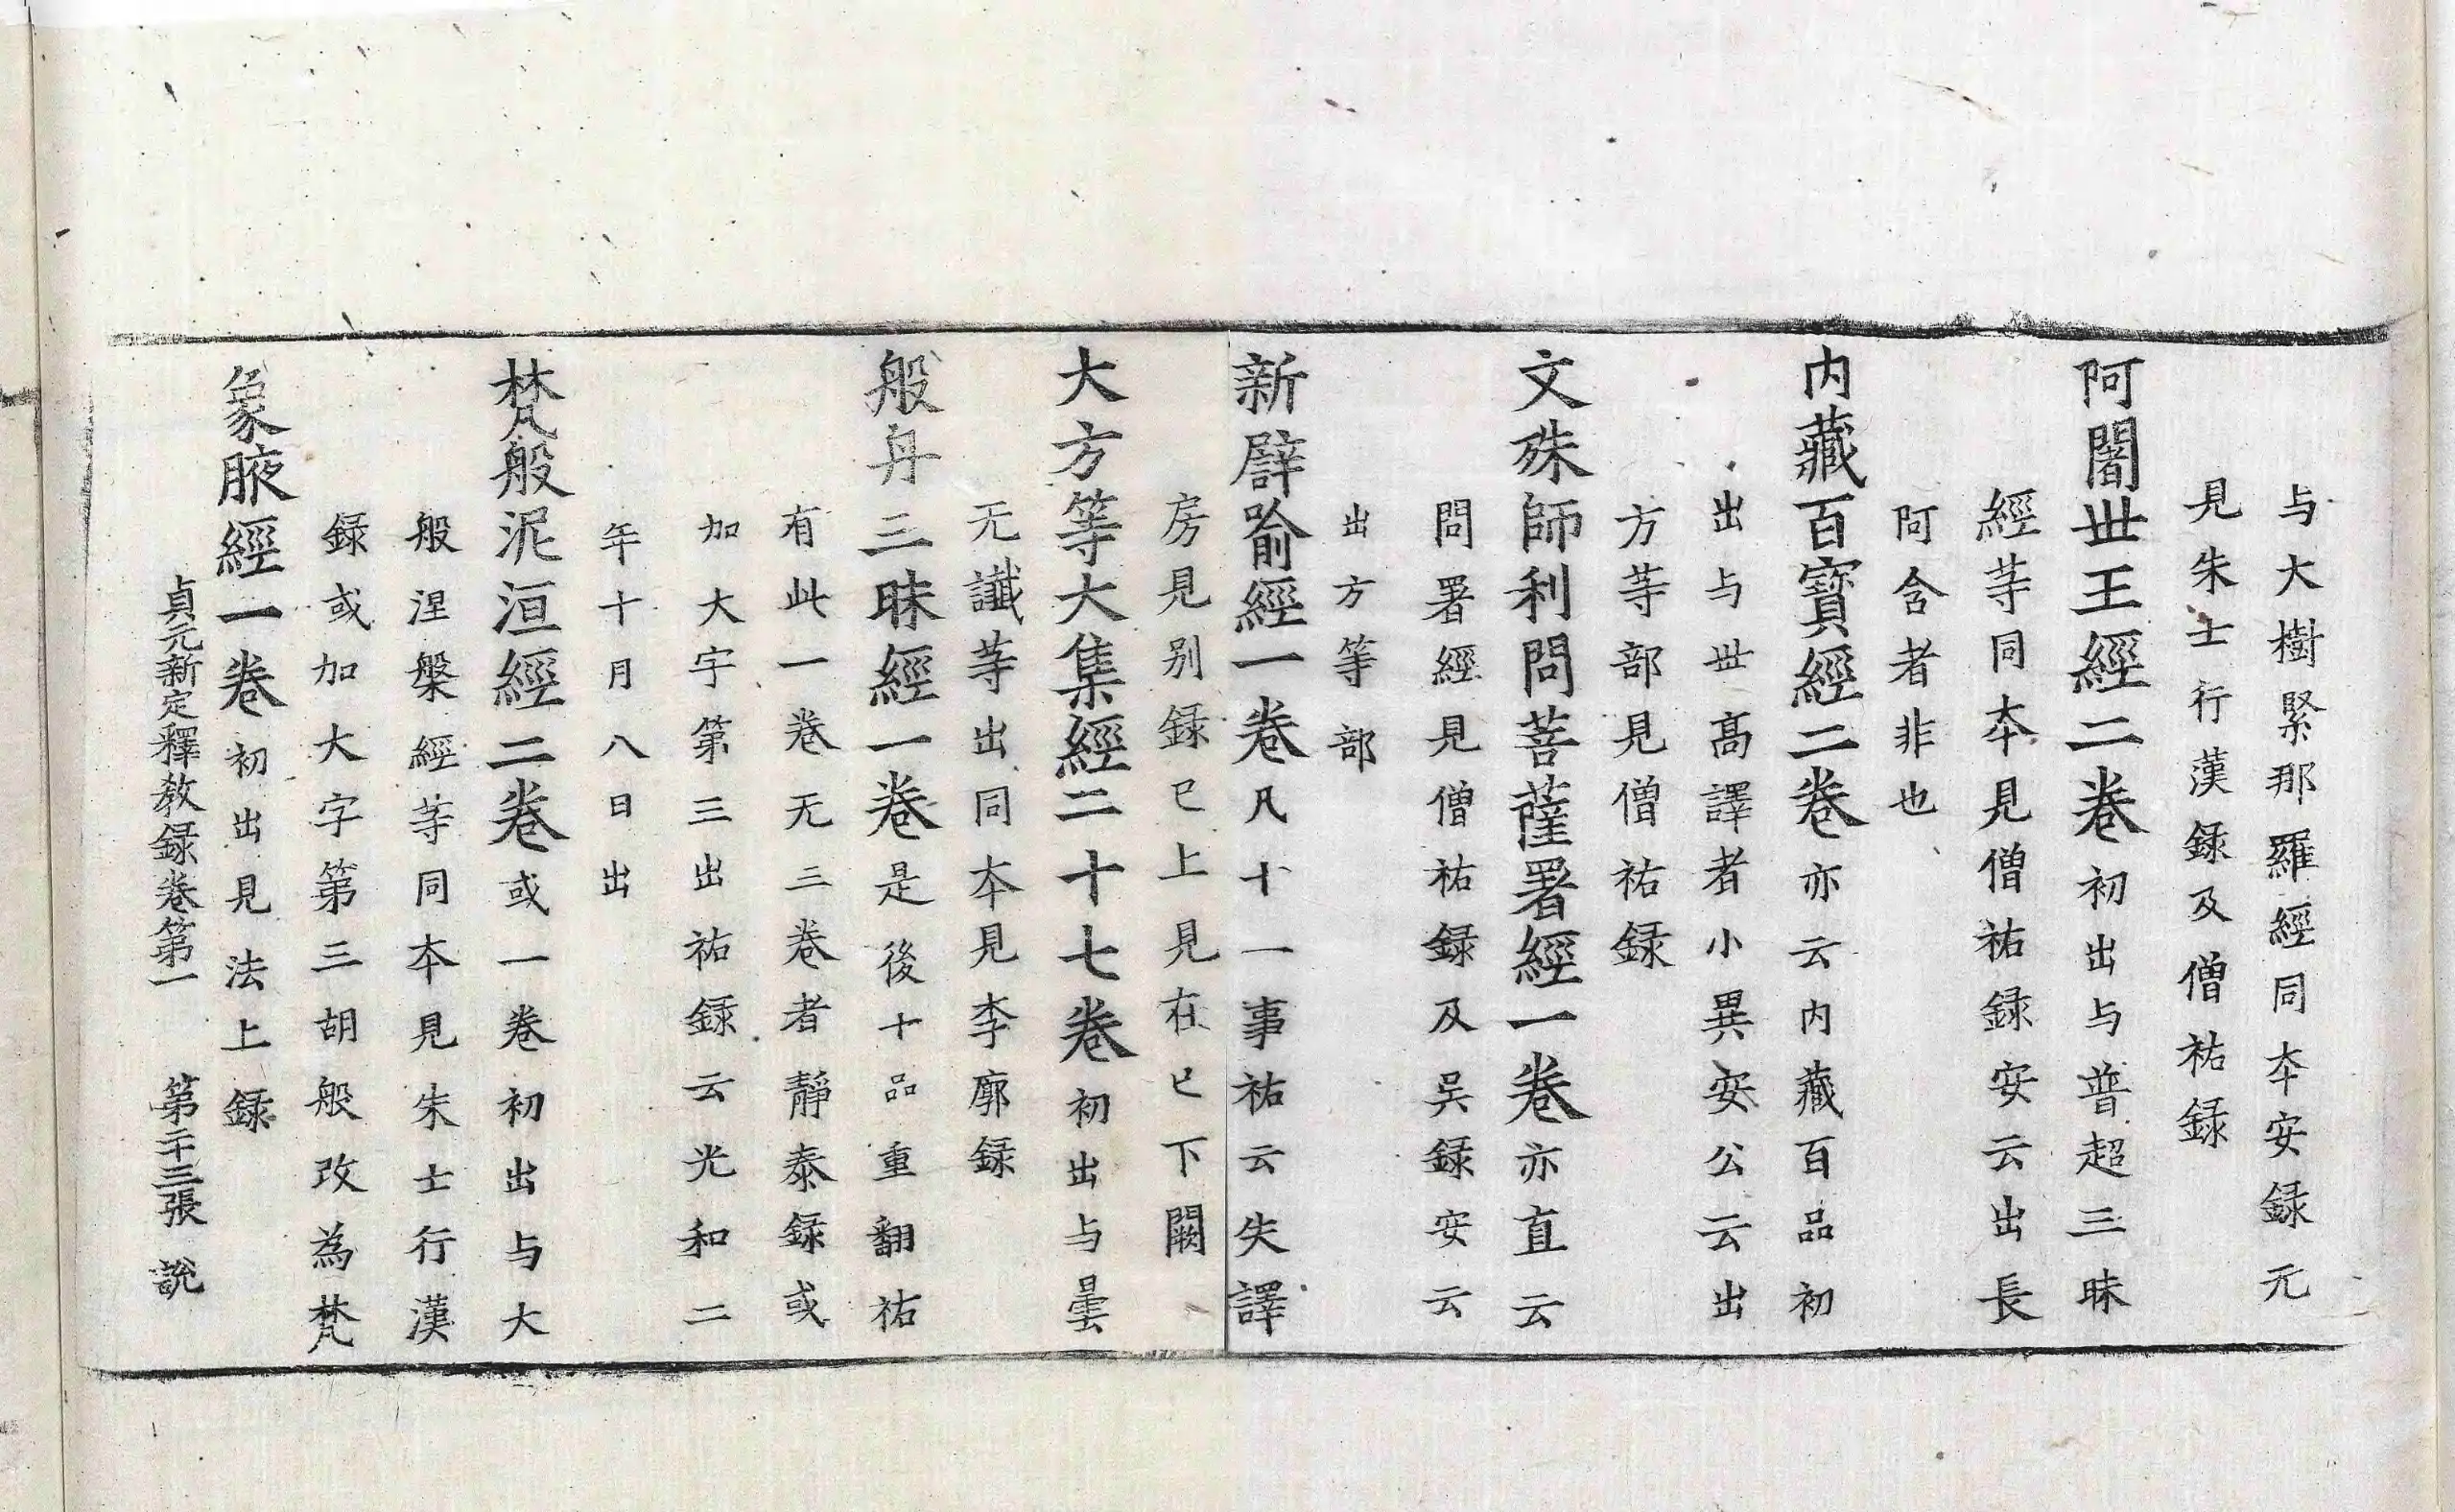 与大樹緊那羅經同夲安録元
見朱士行漢録及僧祐録
阿闍世王經二卷初出与普超三昧
經䒭同夲見僧祐録安云出長
阿含者非也
内藏百寶經二卷亦云内藏百品初
出与世髙譯者小異安公云出
方䒭部見僧祐録
文殊師利問菩薩署經一卷亦直云
問署經見僧祐録及吴録安云
出方等部
新譬喻經一卷凡十一事祐云失譯
房見别録已上見在已下闕
大方等大集經二十七卷初出与曇
无讖䒭出同夲見李廓録
般舟三昧經一卷是後十品重翻祐
有此一卷无三卷者靜泰録或
加大字第三出祐録云光和二
年十月八日出
梵般泥洹經二卷或一卷初出与大
般涅槃經䒭同夲見朱士行漢
録或加大字第三胡般改為梵
象腋經一卷初出見法上録
貞元新定釋教録卷第一 第二十三張 說